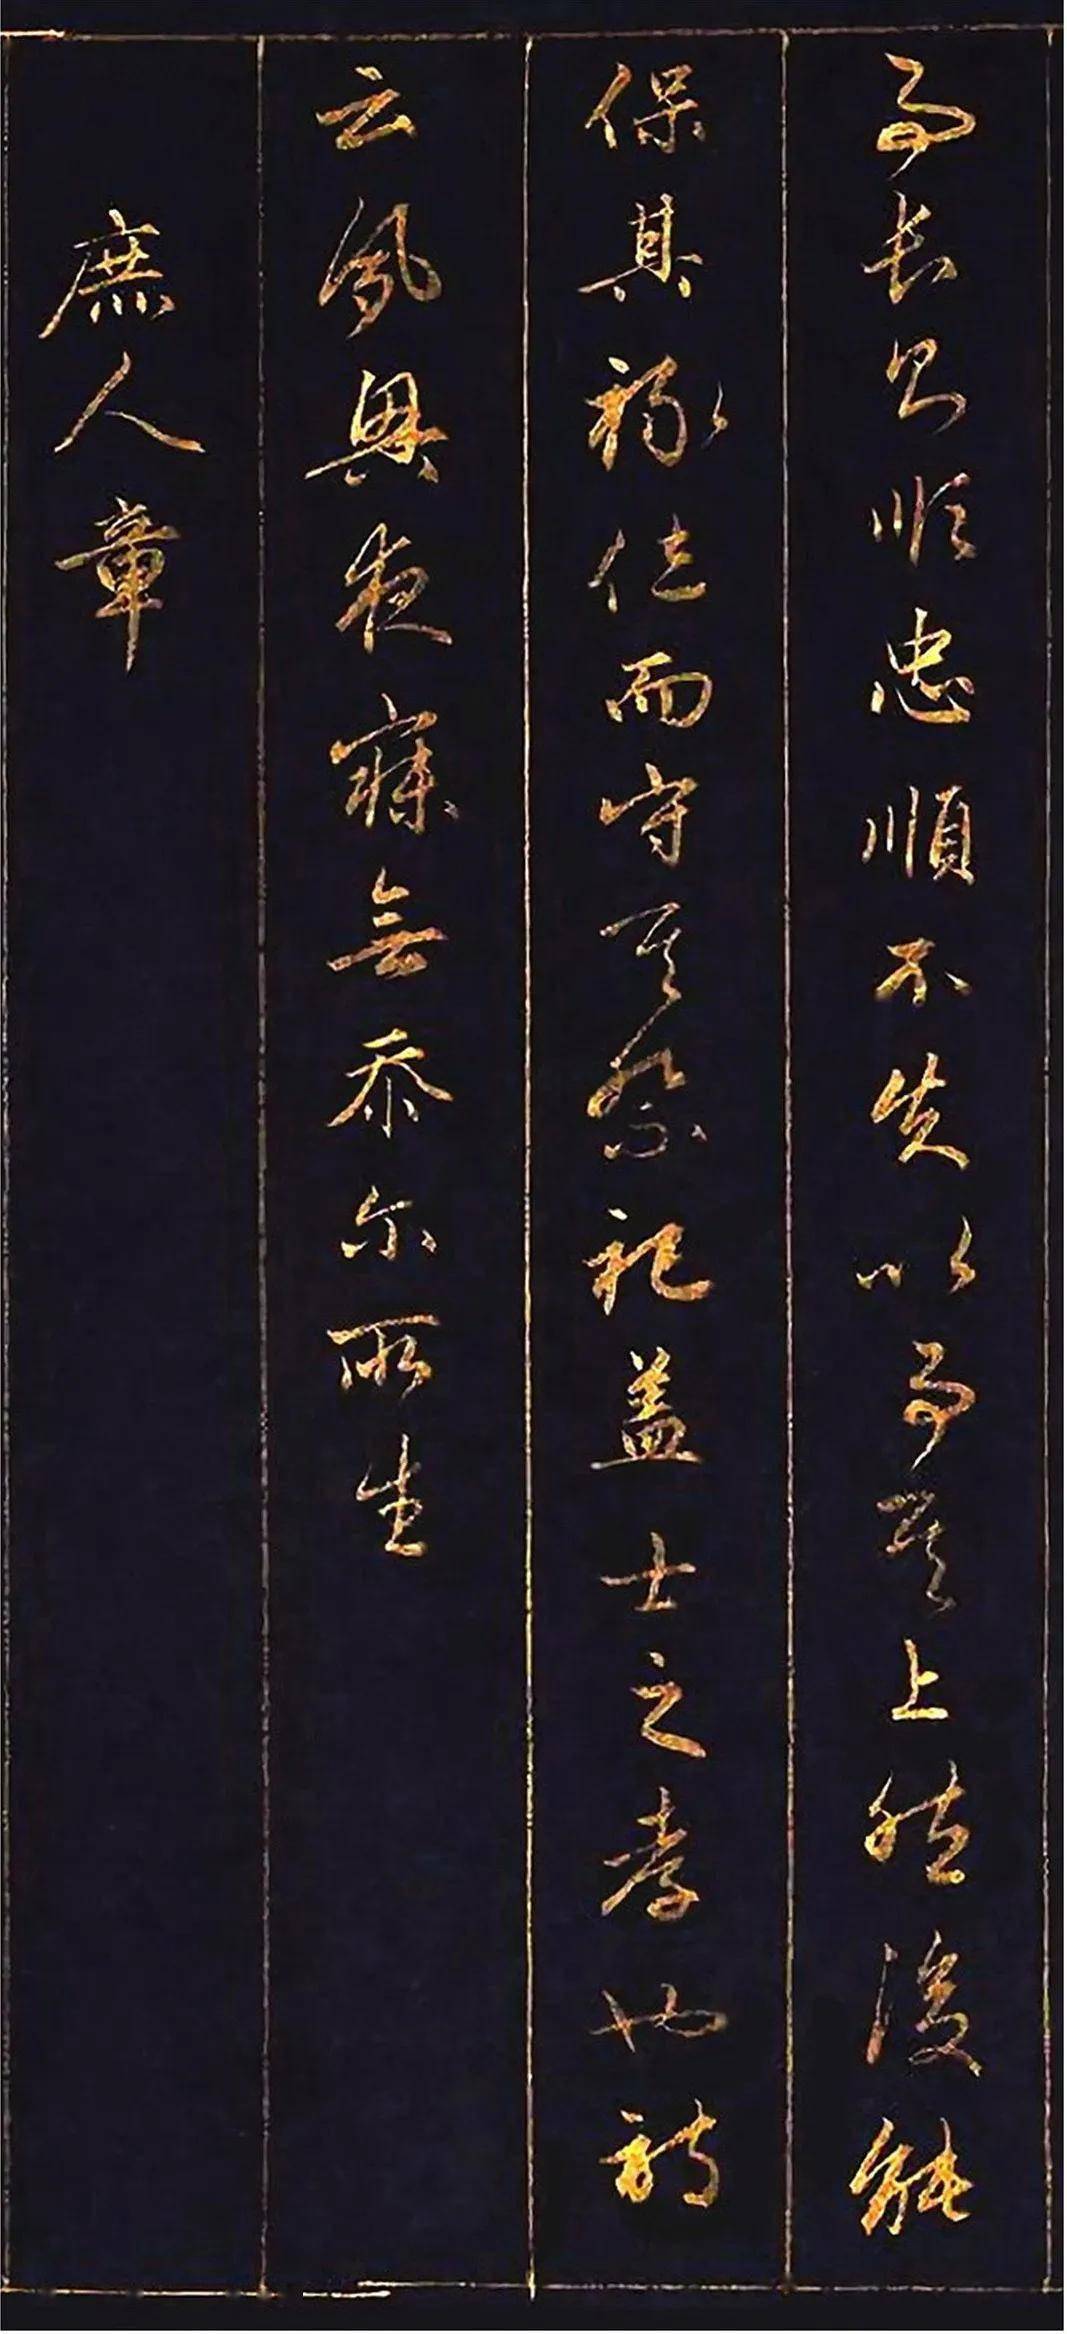 事長則順忠順不失以事其上然後能
保其祿位而守其祭祀盖士之孝也詩
云夙興夜寐無忝尔所生
庶人章